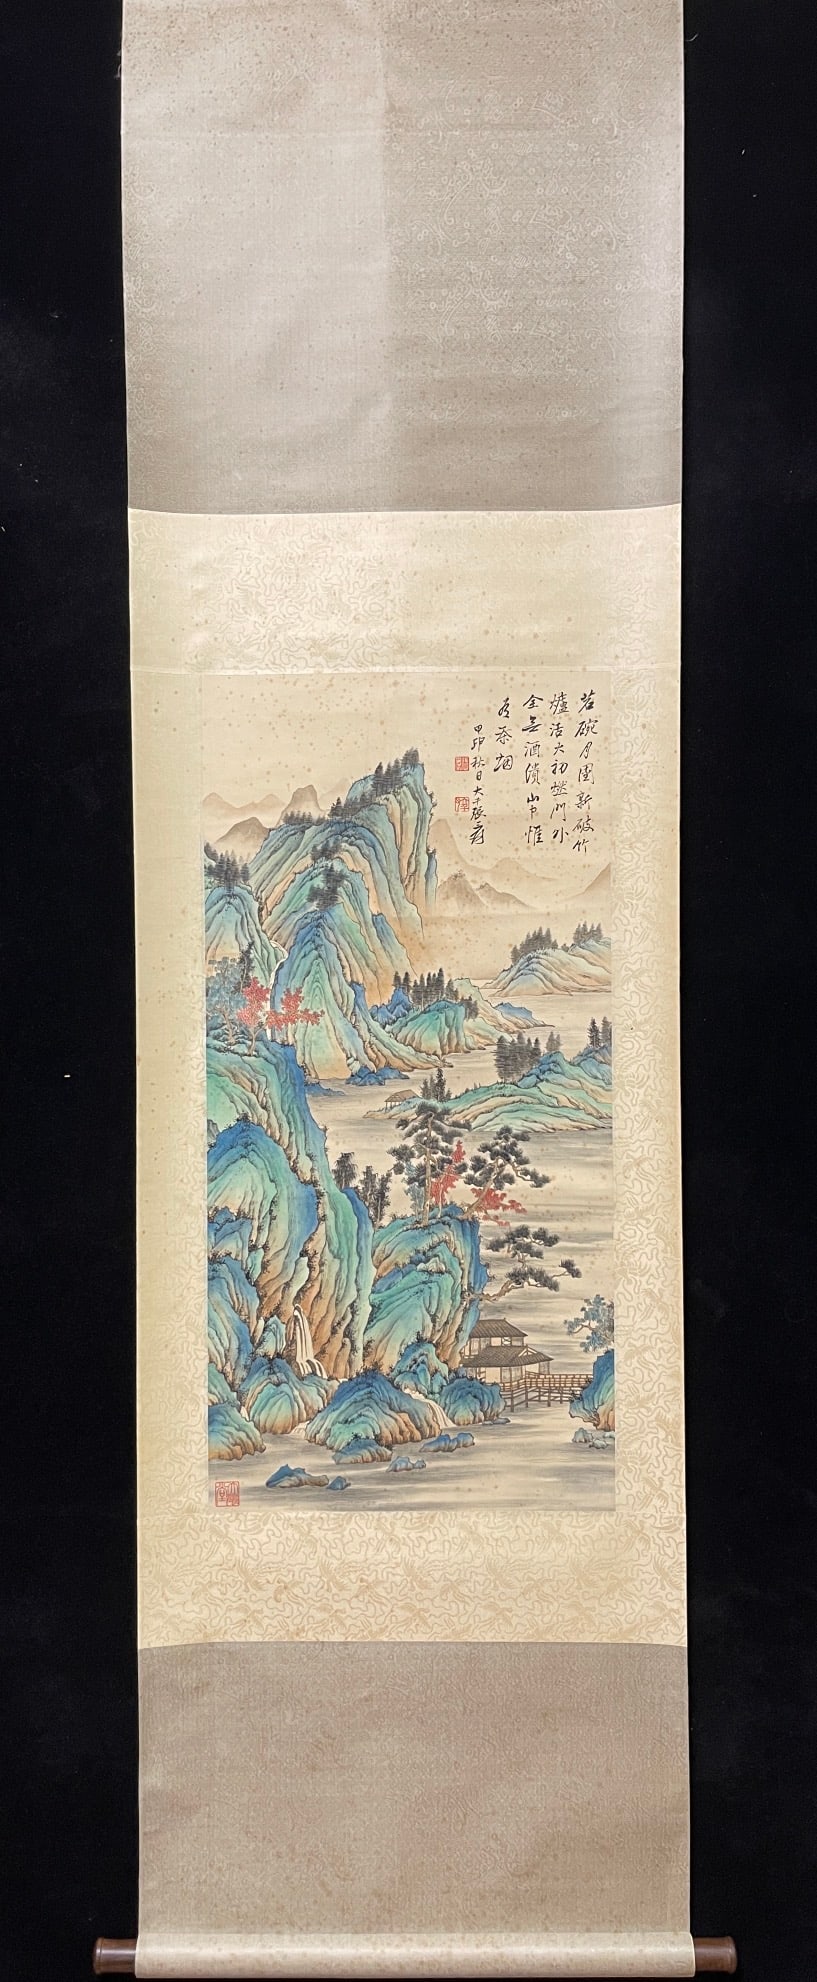 茗碗月團新破竹
爐活火初燃門外
全無酒債山中惟
有茶烟
甲申秋日大千張爰
大風堂